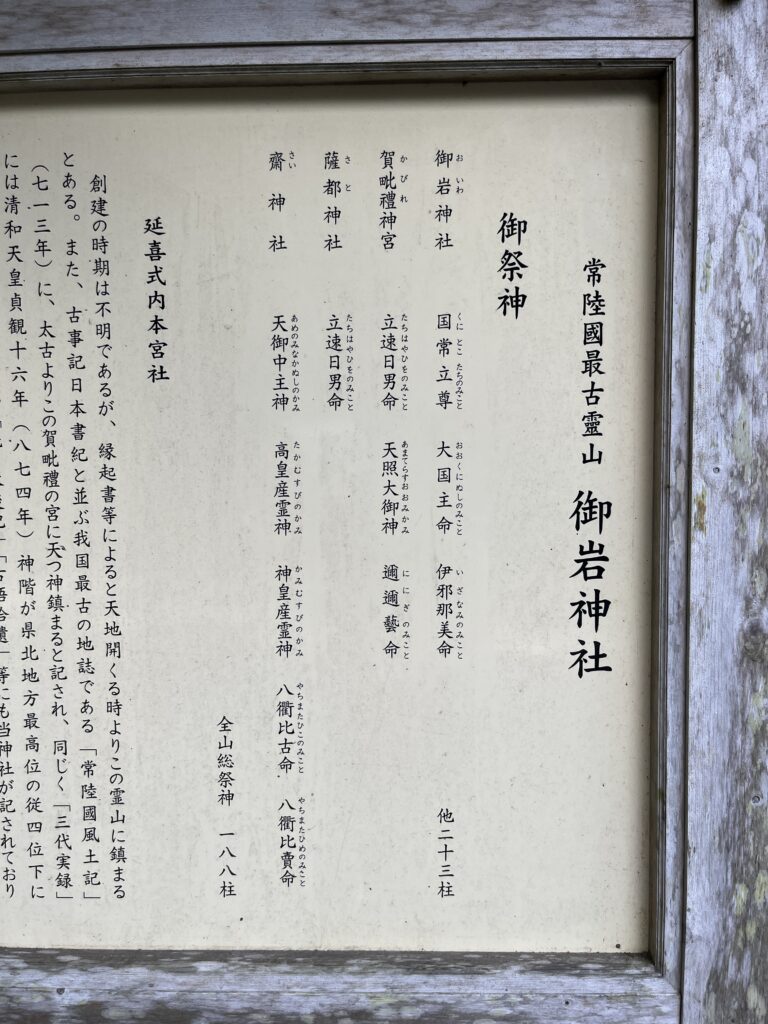 常陸國最古靈山 御岩神社
御祭神
御岩神社 国常立尊 大国主命 伊邪那美命 他二十三柱
おいわ くにとこたちのみこと おおくにぬしのみこと いざなみのみこと
賀毗禮神宮 立速日男命 天照大御神 邇邇藝命
かびれ たちはやひをのみこと あまてらすおおみかみ ににぎのみこと
薩都神社 立速日男命
さと たちはやひをのみこと
齋神社 天御中主神 高皇産霊神 神皇産霊神 八衢比古命 八衢比賣命
さい あめのみなかぬしのかみ たかむすびのかみ かみむすびのかみ やちまたひこのみこと やちまたひめのみこと
全山総祭神 一八八柱
延喜式内本宮社
創建の時期は不明であるが、縁起書等によると天地開くる時よりこの霊山に鎮まる
とある。また、古事記日本書紀と並ぶ我国最古の地誌である「常陸國風土記」
（七一三年）に、太古よりこの賀毗禮の宮に天つ神鎮まると記され、同じく「三代実録」
には清和天皇貞観十六年（八七四年）神階が県北地方最高位の従四位下に
「古語拾遺」等にも当神社が記されており